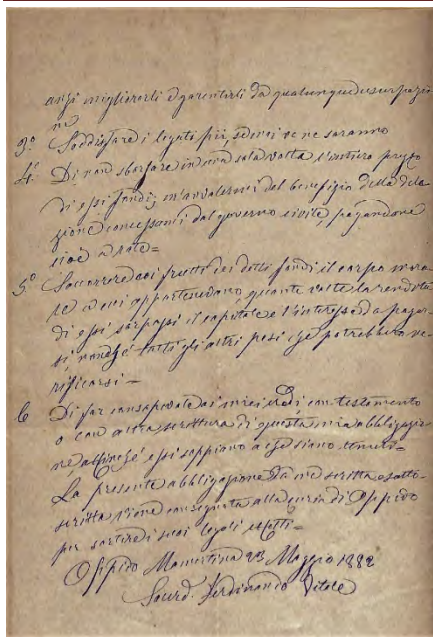 anzi migliorarli e garentirli da qualunque usurpazio
ne
3.º Soddisfare i legati pii, se deci ve ne saranno
4.º Di non sborsare in una sola volta l'intiero prezzo
di essi fondi, m'avvalermi del benefizio della dila
zione concessami dal governo civile, pagandone
cioè a rate=
5.º Soccorrere coi frutti dei detti fondi il corpo mora-
le a cui appartenevano, quante volte la rendita
di essi sorpassi il capitale e l'interesse a pagar-
si, nonché tutti gli altri pesi che potrebbero ve-
rificarsi=
6 Di far consapevole ai miei eredi, con testamento
o con altra scrittura di questa mia obbligazio-
ne, affinché essi sappiano a che siano tenuti=
La presente obbligazione da me scritta e sotto-
scritta viene consegnata alla curia di Oppido
per sortire i suoi legali effetti=
Oppido Mamertina 23 Maggio 1882
Ferdinando Vitale